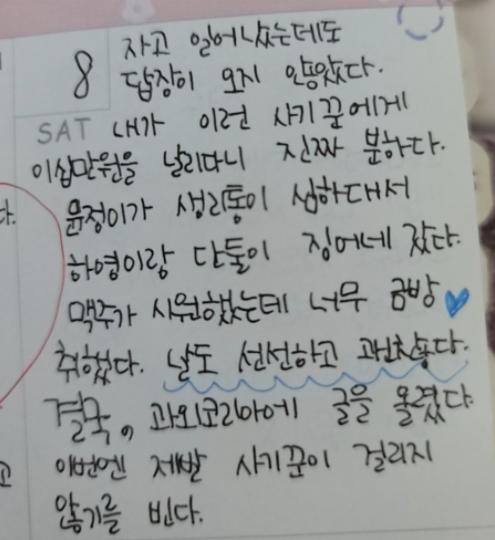 8 자고 일어났는데도
답장이 오지 않았다.
SAT 내가 이런 사기꾼에게
이십만원을 날리다니 진짜 분하다.
윤정이가 생리통이 심하대서
하영이랑 단둘이 징어네 갔다.
맥주가 시원했는데 너무 금방
취했다. 날도 선선하고 괜찮다.
결국, 과외코리아에 글을 올렸다.
이번엔 제발 사기꾼이 걸리지
않기를 빈다.
다.
고